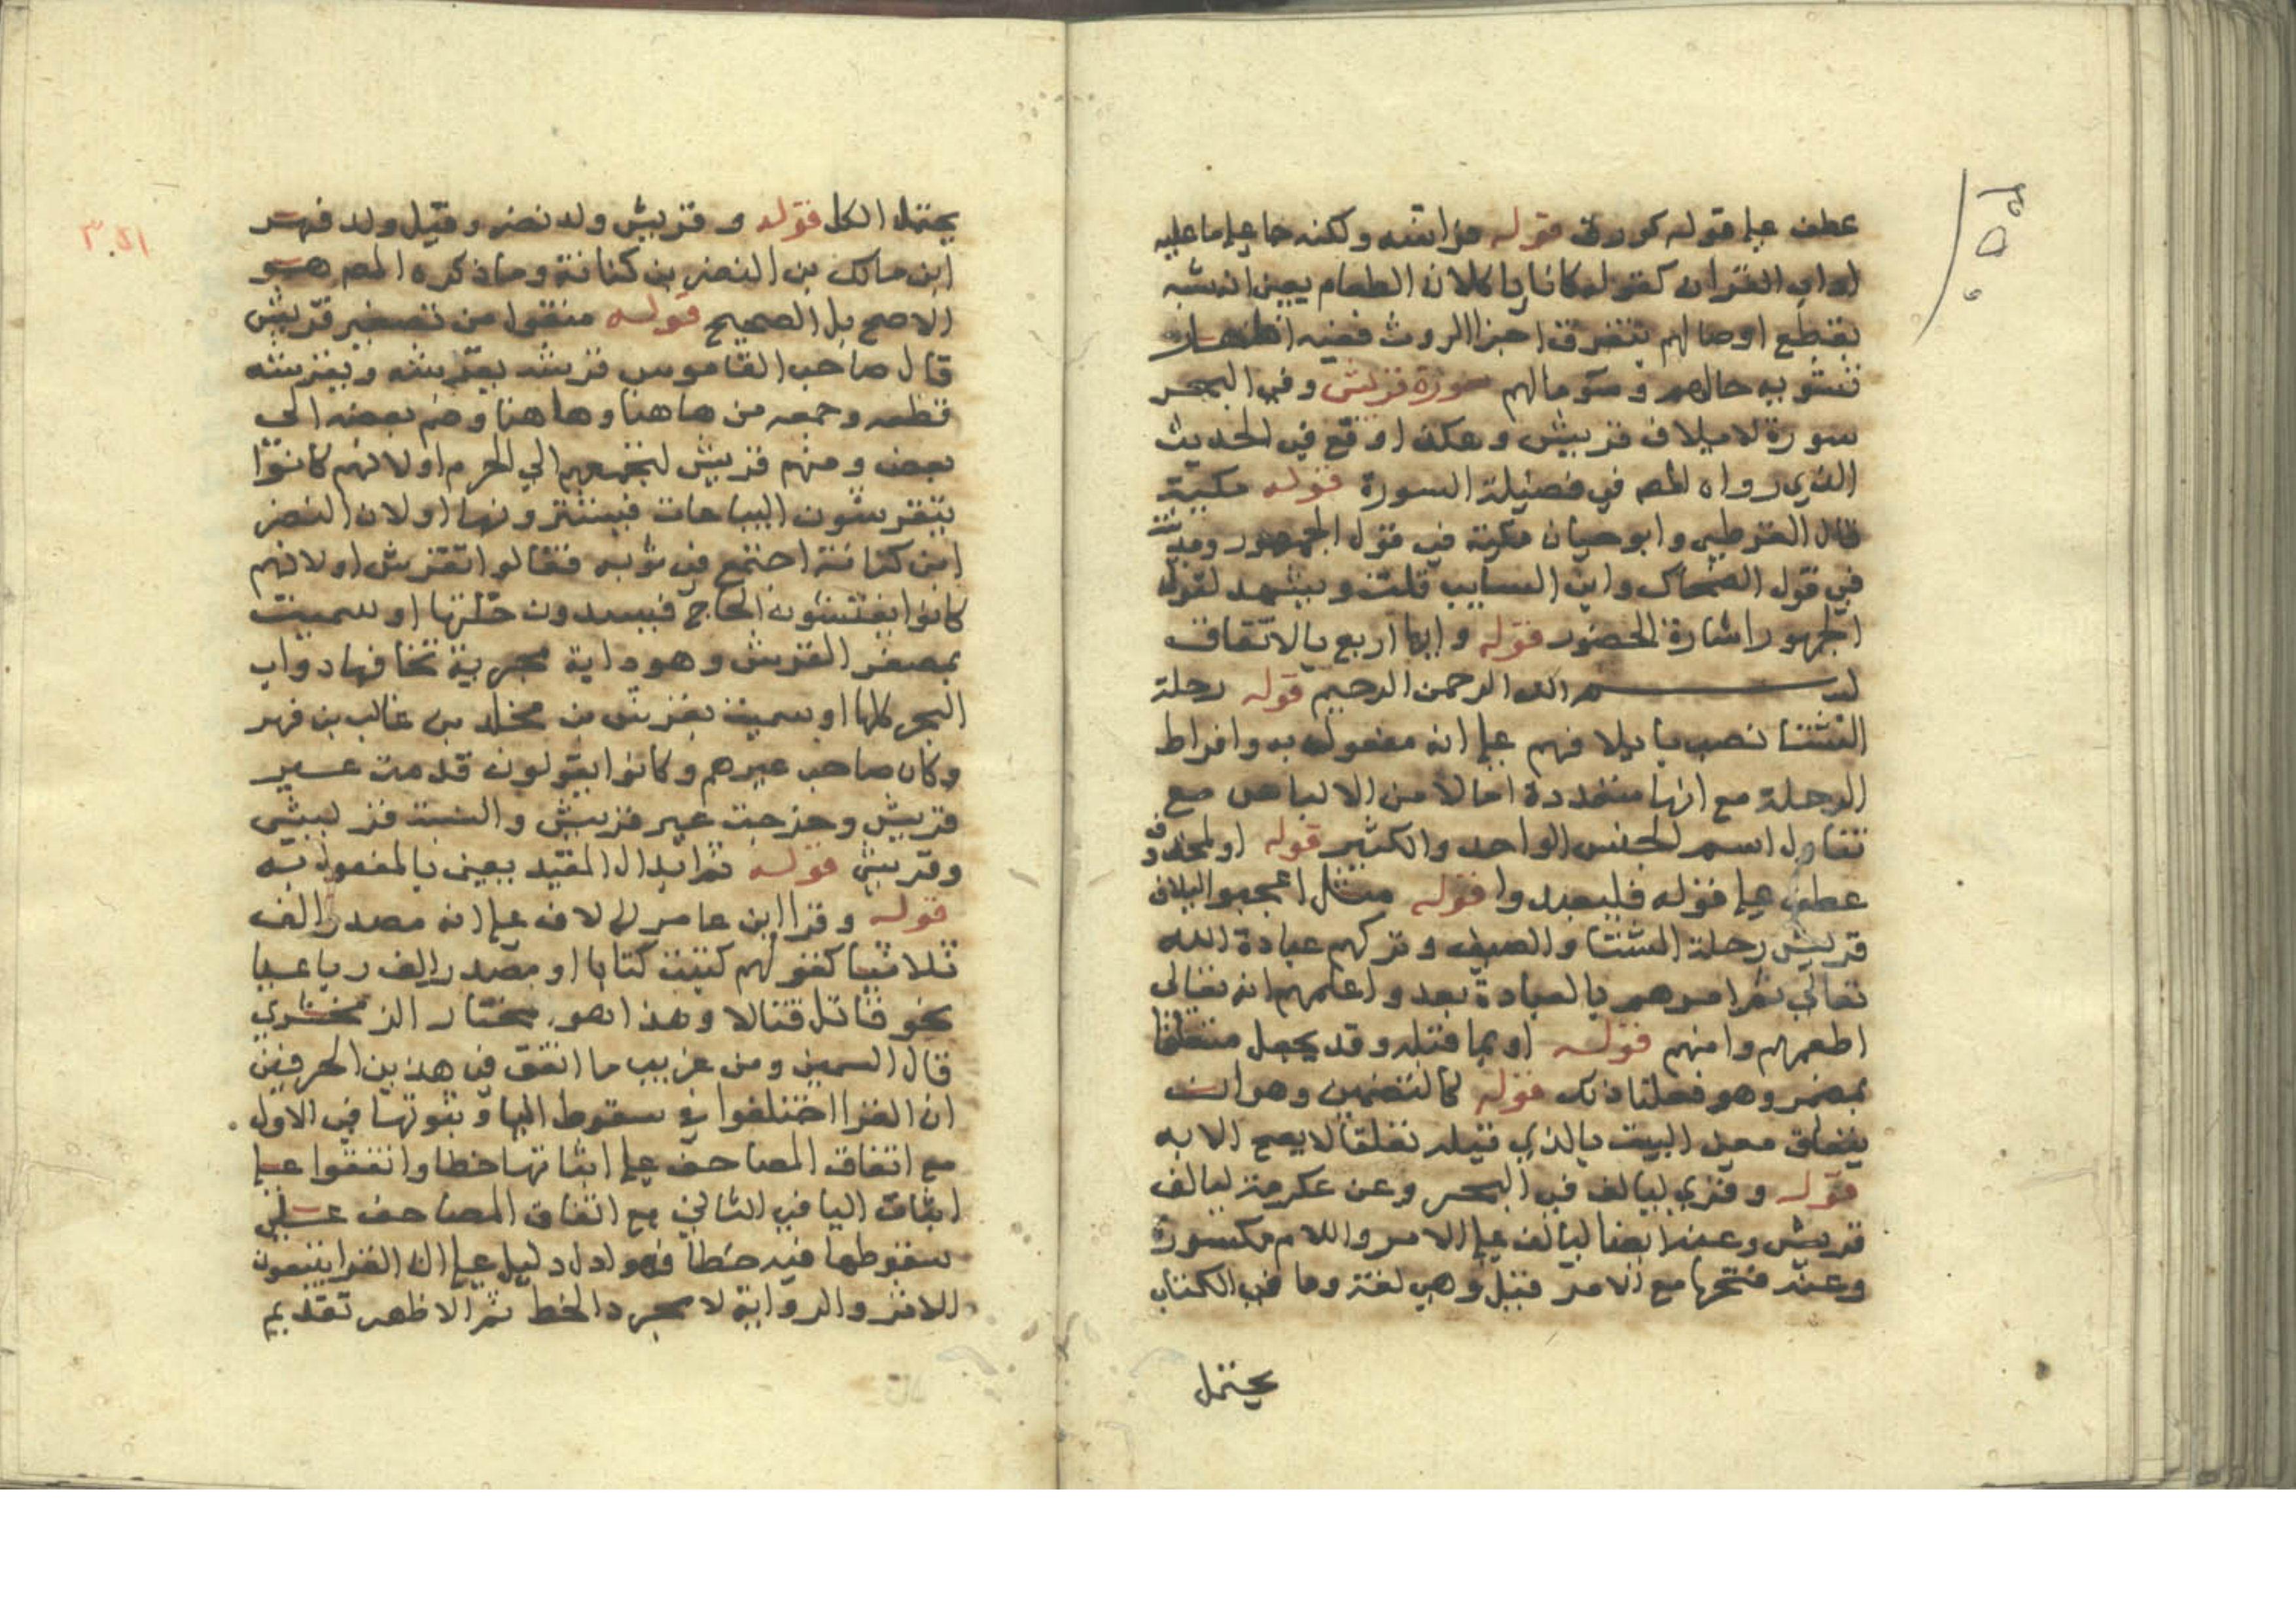 عطف على قوله كورق قوله مراثته ولكنه جا على ما عليه
اداب القران كقوله كانا ياكلان الطعام يعني انه شبه
تقطع اوصالهم بتفرق اجزا الروث ففيه اظهار
تشويه حالهم وسو مالهم سورة قريش وفي البحر
سورة لايلاف قريش وهكذا وقع في الحديث
الذي رواه المص في فضيلة السورة قوله مكية
قال القرطبي وابو حيان مكية في قول الجمهور ومدنية
في قول الضحاك وابن السايب قلت ويشهد لقول
الجمهور اشارة الحضور قوله وايها اربع بالاتفاق
بسم الله الرحمن الرحيم قوله رحلة
الشتا نصب بايلافهم على انه مفعول به وافراط
الرحلة مع انها متعددة اما لامن الالباس مع
تناول اسم الجنس الواحد والكثير قوله او لمحذوف
عطف على قوله فليعبدوا قوله مثل اعجبوا لايلاف
قريش رحلة الشتا والصيف وتركهم عبادة الله
تعالى ثم امرهم بالعبادة بعد واعلمهم انه تعالى
اطعمهم وامنهم قوله او بما قبله وقد يجعل متعلقا
بمضمر وهو فعلنا ذلك قوله كالتضمين وهو ان
يتعلق معنى البيت بالذي قبله تعلقا لا يصح الا به
قوله وقري ليالف في البحر وعن عكرمة ليالف
قريش وعنه ايضا لتالف على الامر واللام مكسورة
وعنه فتحها مع الامر قيل وهي لغة وما في الكتاب
يحتمل
٣٠٥١
يحتمل الكل قوله وقريش ولد نضر وقيل ولد فهر
ابن مالك بن النضر بن كنانة وما ذكره المص هو
الاصح بل الصحيح قوله منقول من تصغير قريش
قال صاحب القاموس قرشه يقرشه ويقرشه
قطعه وجمعه من هاهنا وهاهنا وضم بعضه الى
بعض ومنهم قريش لتجمعهم الي الحرم او لانهم كانوا
يتقرشون البياعات فيشترونها او لان النضر
ابن كنانة اجتمع في ثوبه فقالوا تقرش او لانهم
كانوا يفتشون الحاج فيسدون خلتها او سميت
بمصغر القرش وهو دابة بحرية تخافها دواب
البحر كلها او سميت بقريش بن مخلد بن غالب بن فهر
وكان صاحب عيرهم وكانوا يقولون قدمت عير
قريش وخرجت عير قريش والنسبة قريشي
وقرشي قوله ثم ابدال المقيد يعني بالمفعول به
قوله وقرا ابن عامر لالاف على انه مصدر الف
ثلاثيا كقولهم كتبت كتابا او مصدر الف رباعيا
نحو قاتل قتالا وهذا هو مختار الزمخشري
قال السمين ومن غريب ما اتفق في هذين الحرفين
ان القرا اختلفوا في سقوط اليا وثبوتها في الاول
مع اتفاق المصاحف على اثباتها خطا واتفقوا على
اثبات اليا في الثاني مع اتفاق المصاحف على
سقوطها فيه خطا فهو ادل دليل على ان القرا يتبعون
الاثر والرواية لا مجرد الخط ثم الاظهر تقديم